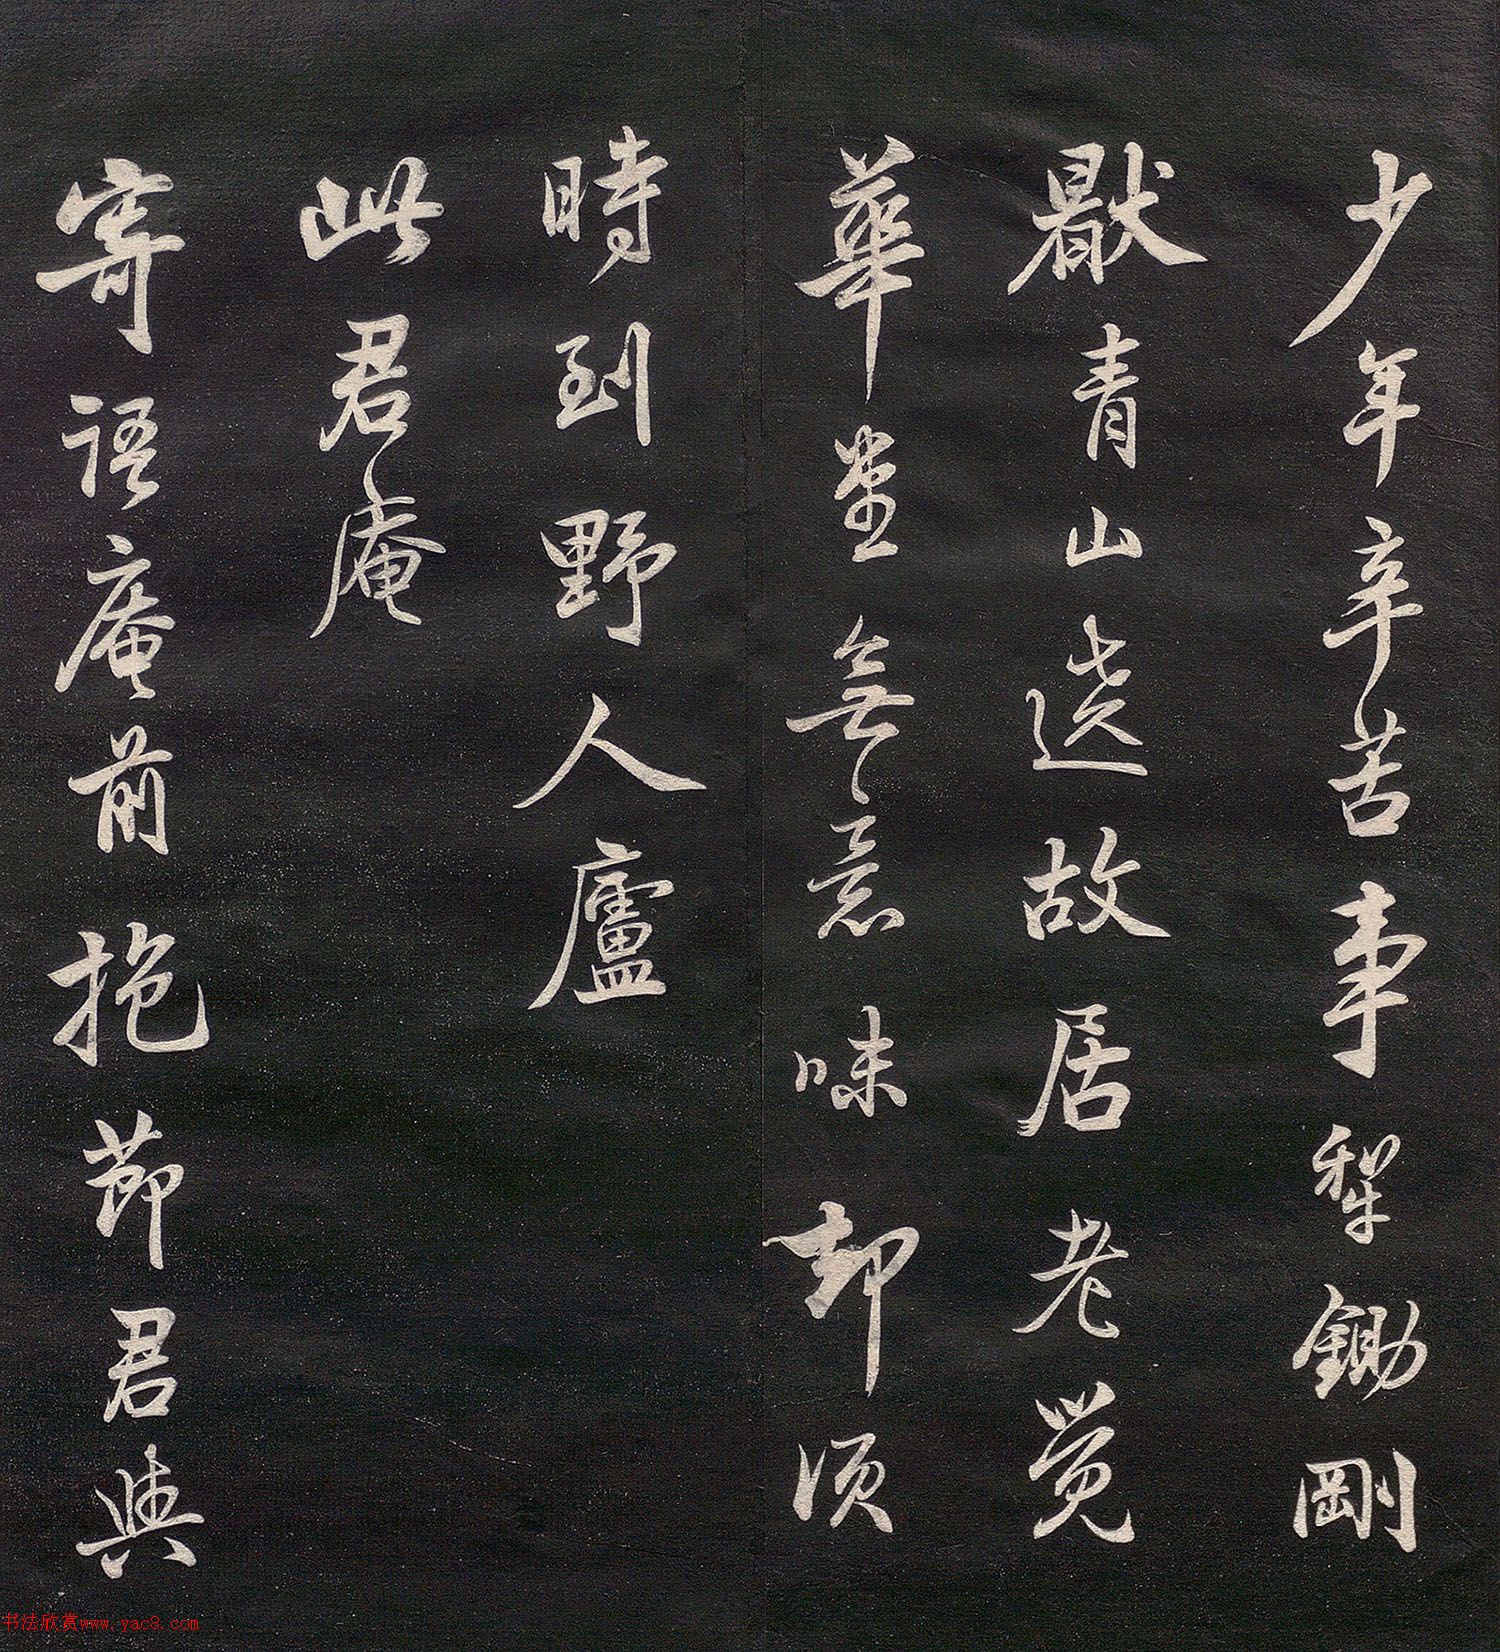 少年辛苦事犁鋤剛
厭青山遶故居老覺
華堂無意味却須
時到野人廬
此君庵
寄語庵前抱節君與
书法欣赏www.yac8.com